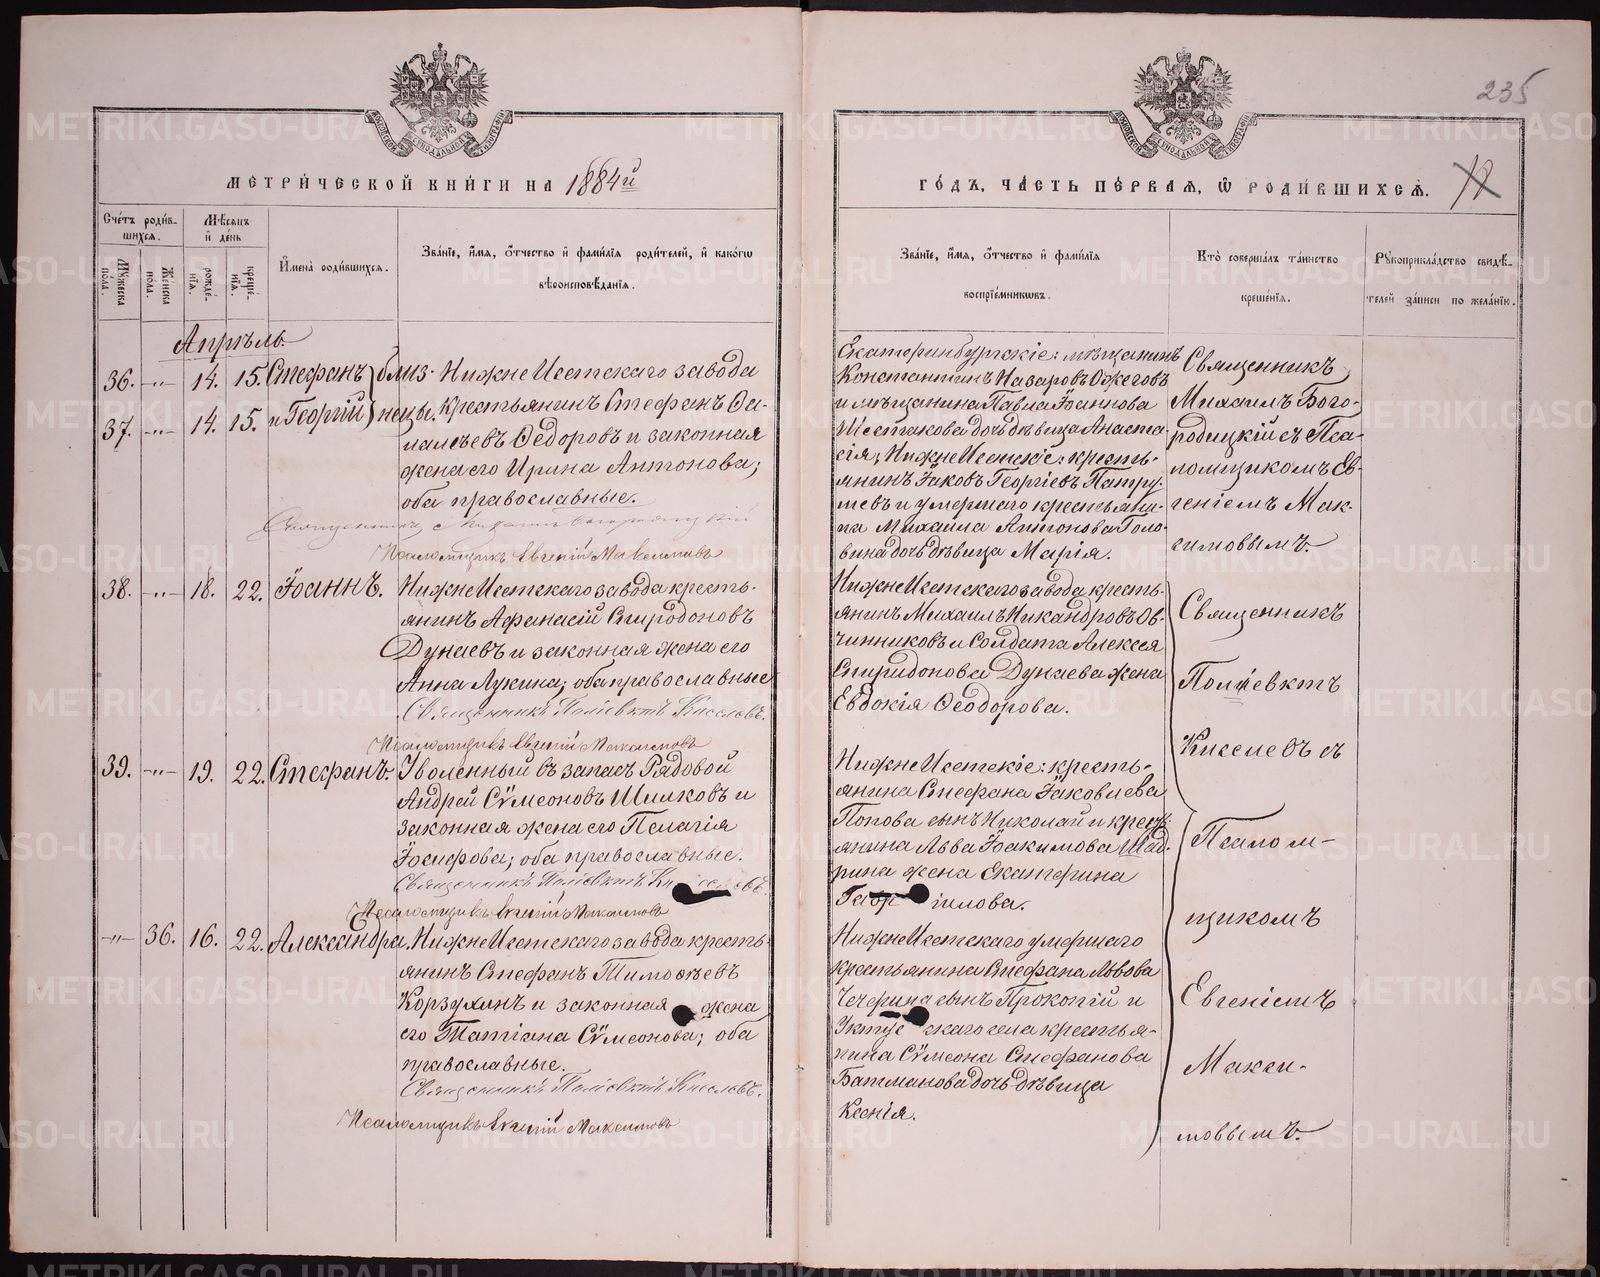 235
МЕТРИ́ЧЕСКОЙ КНИ́ГИ НА 1884й
ГО́ДЪ, ЧА́СТЬ ПЕ́РВАЯ, Ѽ РОДИ́ВШИХСѦ.
12
Сче́тъ роди́в-
шихся.
Мѣсяцъ
и де́нь
Мꙋжеска
по́ла.
Же́нска
по́ла.
рожде́-
нїя.
креще́-
нїя.
И҆мена̀ роди́вшихся.
Зва́нїе, и҆́мя, ѻ҆́тчество и҆ фами́лїя роди́телей, и҆ како́гѡ
вѣроисповѣ́данїя.
Зва́нїе, и҆́мя, ѻ҆́тчество и҆ фами́лїя
воспрїе́мникѡвъ.
Кто̀ соверша́лъ та́инство
креще́нїя.
Рꙋкоприкла́дство свидѣ́-
телей за́писи по жела́нїю.
Апрѣль
36. -"- 14. 15. Стефанъ } близ-
37. -"- 14. 15. и Георгій } нецы.
НижнеИсетскаго завода
крестьянинъ Стефанъ Са-
моѣевъ Ѳедоровъ и законная
жена его Ирина Антонова;
оба православные.
Священникъ Михаилъ Богородицкій
Псаломщикъ Евгеній Максимовъ
Екатеринбургскіе: мѣщанинъ
Константинъ Назаровъ Ожеговъ
и мѣщанина Павла Іоаннова
Шестакова дочь дѣвица Анаста-
сія; НижнеИсетскіе: кресть-
янинъ Іаковъ Георгіевъ Патру-
шевъ и умершаго крестьяни-
на Михаила Антонова Голо-
вина дочь дѣвица Марія.
Священникъ
Михаилъ Бого-
родицкій съ Пса-
ломщикомъ Ев-
геніемъ Мак-
симовымъ.
38. -"- 18. 22. Іоаннъ.
НижнеИсетскаго завода кресть-
янинъ Афанасій Спиридоновъ
Дунаевъ и законная жена его
Анна Лукина; оба православные
Священникъ Поліевктъ Киселевъ.
Псаломщикъ Евгеній Максимовъ
НижнеИсетскаго завода кресть-
янинъ Михаилъ Никандровъ Ов-
чинниковъ и Солдата Алексея
Спиридонова Дунаева жена
Евдокія Ѳеодорова.
39. -"- 19. 22. Стефанъ.
Уволенный въ запасъ Рядовой
Андрей Сѵмеоновъ Шилковъ и
законная жена его Пелагія
Іосифова; оба православные.
Священникъ Поліевктъ Киселевъ.
Псаломщикъ Евгеній Максимовъ
НижнеИсетскіе: кресть-
янина Стефана Іаковлева
Попова сынъ Николай и крест-
янина Льва Іоакимова Шад-
рина жена Екатерина
Гавріилова.
-"- 36. 16. 22. Александра.
НижнеИсетскаго завода кресть-
янинъ Стефанъ Тимоѳеевъ
Корзухинъ и законная жена
его Татіана Сѵмеонова; оба
православные.
Священникъ Поліевктъ Киселевъ.
Псаломщикъ Евгеній Максимовъ
НижнеИсетскаго умершаго
крестьянина Стефана Львова
Чечерина сынъ Прокопій и
Уктусскаго села крестья-
нина Сѵмеона Стефанова
Батманова дочь дѣвица
Ксенія.
Священникъ
Поліевктъ
Киселевъ съ
Псалом-
щикомъ
Евгеніемъ
Макси-
мовымъ.